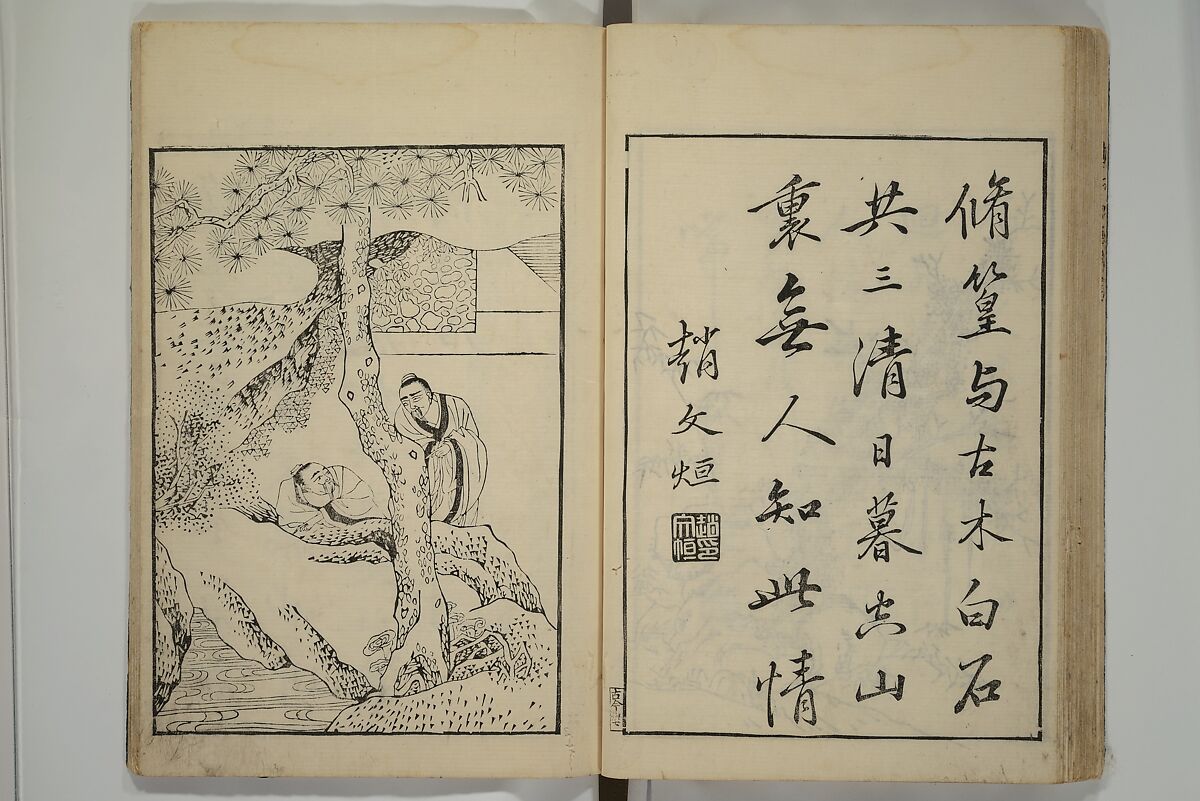 脩篁与古木白石
共三清日暮空山
裏無人知此情
趙文烜
古今